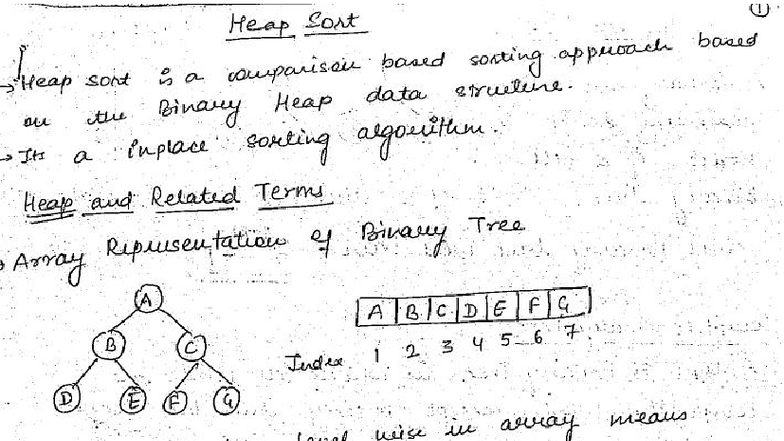 ①
Heap Sort
→ Heap sort is a comparison based sorting approach based
on the Binary Heap data structure.
→ Its a inplace sorting algorithm.
Heap and Related Terms
→ Array Representation of Binary Tree
A
B C
D E F G
A B C D E F G
Index 1 2 3 4 5 6 7
level wise in array means